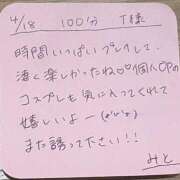 4/18 100分 T様
時間いっぱいプレイして、
凄く楽しかったね♡♡個人OPの
コスプレも気に入ってくれて
嬉しいよー(≧▽≦)
また誘って下さい!!
みと